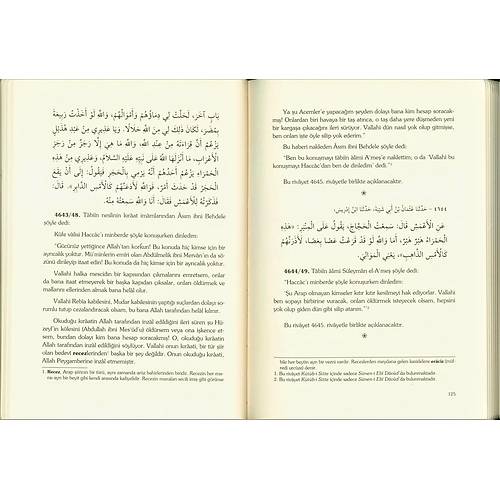 بَابٍ آخَرَ، لَحَلَّتْ لِي دِمَاؤُهُمْ وَأَمْوَالُهُمْ، وَاللَّهِ لَوْ أَخَذْتُ رَبِيعَةَ
بِمُضَرَ، لَكَانَ ذَلِكَ لِي مِنَ اللَّهِ حَلَالًا، وَيَا عَذِيرِي مِنْ عَبْدِ هُذَيْلٍ
يَزْعُمُ أَنَّ قِرَاءَتَهُ مِنْ عِنْدِ اللَّهِ، وَاللَّهِ مَا هِيَ إِلَّا رَجَزٌ مِنْ رَجَزِ
الْأَعْرَابِ، مَا أَنْزَلَهَا اللَّهُ عَلَى نَبِيِّهِ عَلَيْهِ السَّلَامُ، وَعَذِيرِي مِنْ هَذِهِ
الْحَمْرَاءِ، يَزْعُمُ أَحَدُهُمْ أَنَّهُ يَرْمِي بِالْحَجَرِ فَيَقُولُ: إِلَى أَنْ يَقَعَ
الْحَجَرُ قَدْ حَدَثَ أَمْرٌ، فَوَاللَّهِ لَأَدَعَنَّهُمْ كَالْأَمْسِ الدَّابِرِ». قَالَ:
فَذَكَرْتُهُ لِلْأَعْمَشِ فَقَالَ: أَنَا وَاللَّهِ سَمِعْتُهُ مِنْهُ.
4643/48. Tâbiîn neslinin kırâat imâmlarından Âsım ibni Behdele
şöyle dedi:
Kûfe vâlisi Haccâc'ı minberde şöyle konuşurken dinledim:
"Gücünüz yettiğince Allah'tan korkun! Bu konuda hiç kimse için bir
ayrıcalık yoktur. Mü'minlerin emîri olan Abdülmelik ibni Mervân'ın da sö-
zünü dinleyip itaat edin! Bu konuda da hiç kimse için bir ayrıcalık yoktur.
Vallahi halka mescidin bir kapısından çıkmalarını emretsem, onlar
da bana itaat etmeyerek bir başka kapıdan çıksalar, onları öldürmek ve
mallarını ellerinden almak bana helâl olur.
Vallahi Rebîa kabilesini, Mudar kabilesinin yaptığı suçlardan dolayı so-
rumlu tutup cezalandıracak olsam, bu bana Allah tarafından helâl kılınır.
Okuduğu kırâatin Allah tarafından inzâl edildiğini ileri süren şu Hü-
zeyl'in kölesini (Abdullah ibni Mes'ûd'u) öldürsem veya ona işkence et-
sem, bundan dolayı kim bana hesap soracakmış! O, okuduğu kırâatin
Allah tarafından inzâl edildiğini söylüyor. Vallahi onun kırâati, bir tür şiir
olan bedevî recezlerinden¹ başka bir şey değildir. Onun okuduğu kırâati,
Allah Peygamberine inzâl etmemiştir.
1. Recez, Arap şiirinin bir türü, aynı zamanda arûz bahirlerinden biridir. Recezin her mıs-
raı aynı bir beyit gibi kendi arasında kafiyelidir. Recezin mısraları secîli imiş gibi görünse
Ya şu Acemler'e yapacağım şeyden dolayı bana kim hesap soracak-
mış! Onlardan biri havaya bir taş atınca, o taş daha yere düşmeden yeni
bir kargaşa çıkacağını ileri sürüyor. Vallahi dün nasıl yok olup gitmişse,
ben onları işte öyle silip yok ederim."
Bu haberi nakleden Âsım ibni Behdele dedi ki:
"Ben bu konuşmayı tâbiîn âlimi A'meş'e naklettim, o da 'Vallahi bu
konuşmayı Haccâc'dan ben de dinledim' dedi."¹
Bu rivâyet 4645. rivâyetle birlikte açıklanacaktır.
٤٦٤٤ – حَدَّثَنَا عُثْمَانُ بْنُ أَبِي شَيْبَةَ، حَدَّثَنَا ابْنُ إِدْرِيسَ،
عَنِ الْأَعْمَشِ، قَالَ: سَمِعْتُ الْحَجَّاجَ، يَقُولُ عَلَى الْمِنْبَرِ: «هَذِهِ
الْحَمْرَاءُ هَبْرٌ هَبْرٌ، أَمَا وَاللَّهِ لَوْ قَدْ قَرَعْتُ عَصًا بِعَصًا، لَأَذَرَنَّهُمْ
كَالْأَمْسِ الذَّاهِبِ»، يَعْنِي الْمَوَالِيَ.
4644/49. Tâbiîn âlimi Süleymân el-A'meş şöyle dedi:
"Haccâc'ı minberde şöyle konuşurken dinledim:
'Şu Arap olmayan kimseler kıtır kıtır kesilmeyi hak ediyorlar. Vallahi
ben sopayı birbirine vuracak, onları öldürmek isteyecek olsam, hepsini
yok olup giden dün gibi silip atarım.'"²
Bu rivâyet 4645. rivâyetle birlikte açıklanacaktır.
bile her beytin ayrı bir vezni vardır. Recezlerden meydana gelen kasîdelere ercûze (müf-
red urcûze) denir.
1. Bu rivâyet Kütüb-i Sitte içinde sadece Sünen-i Ebî Dâvûd'da bulunmaktadır.
2. Bu rivâyet Kütüb-i Sitte içinde sadece Sünen-i Ebî Dâvûd'da bulunmaktadır.
125